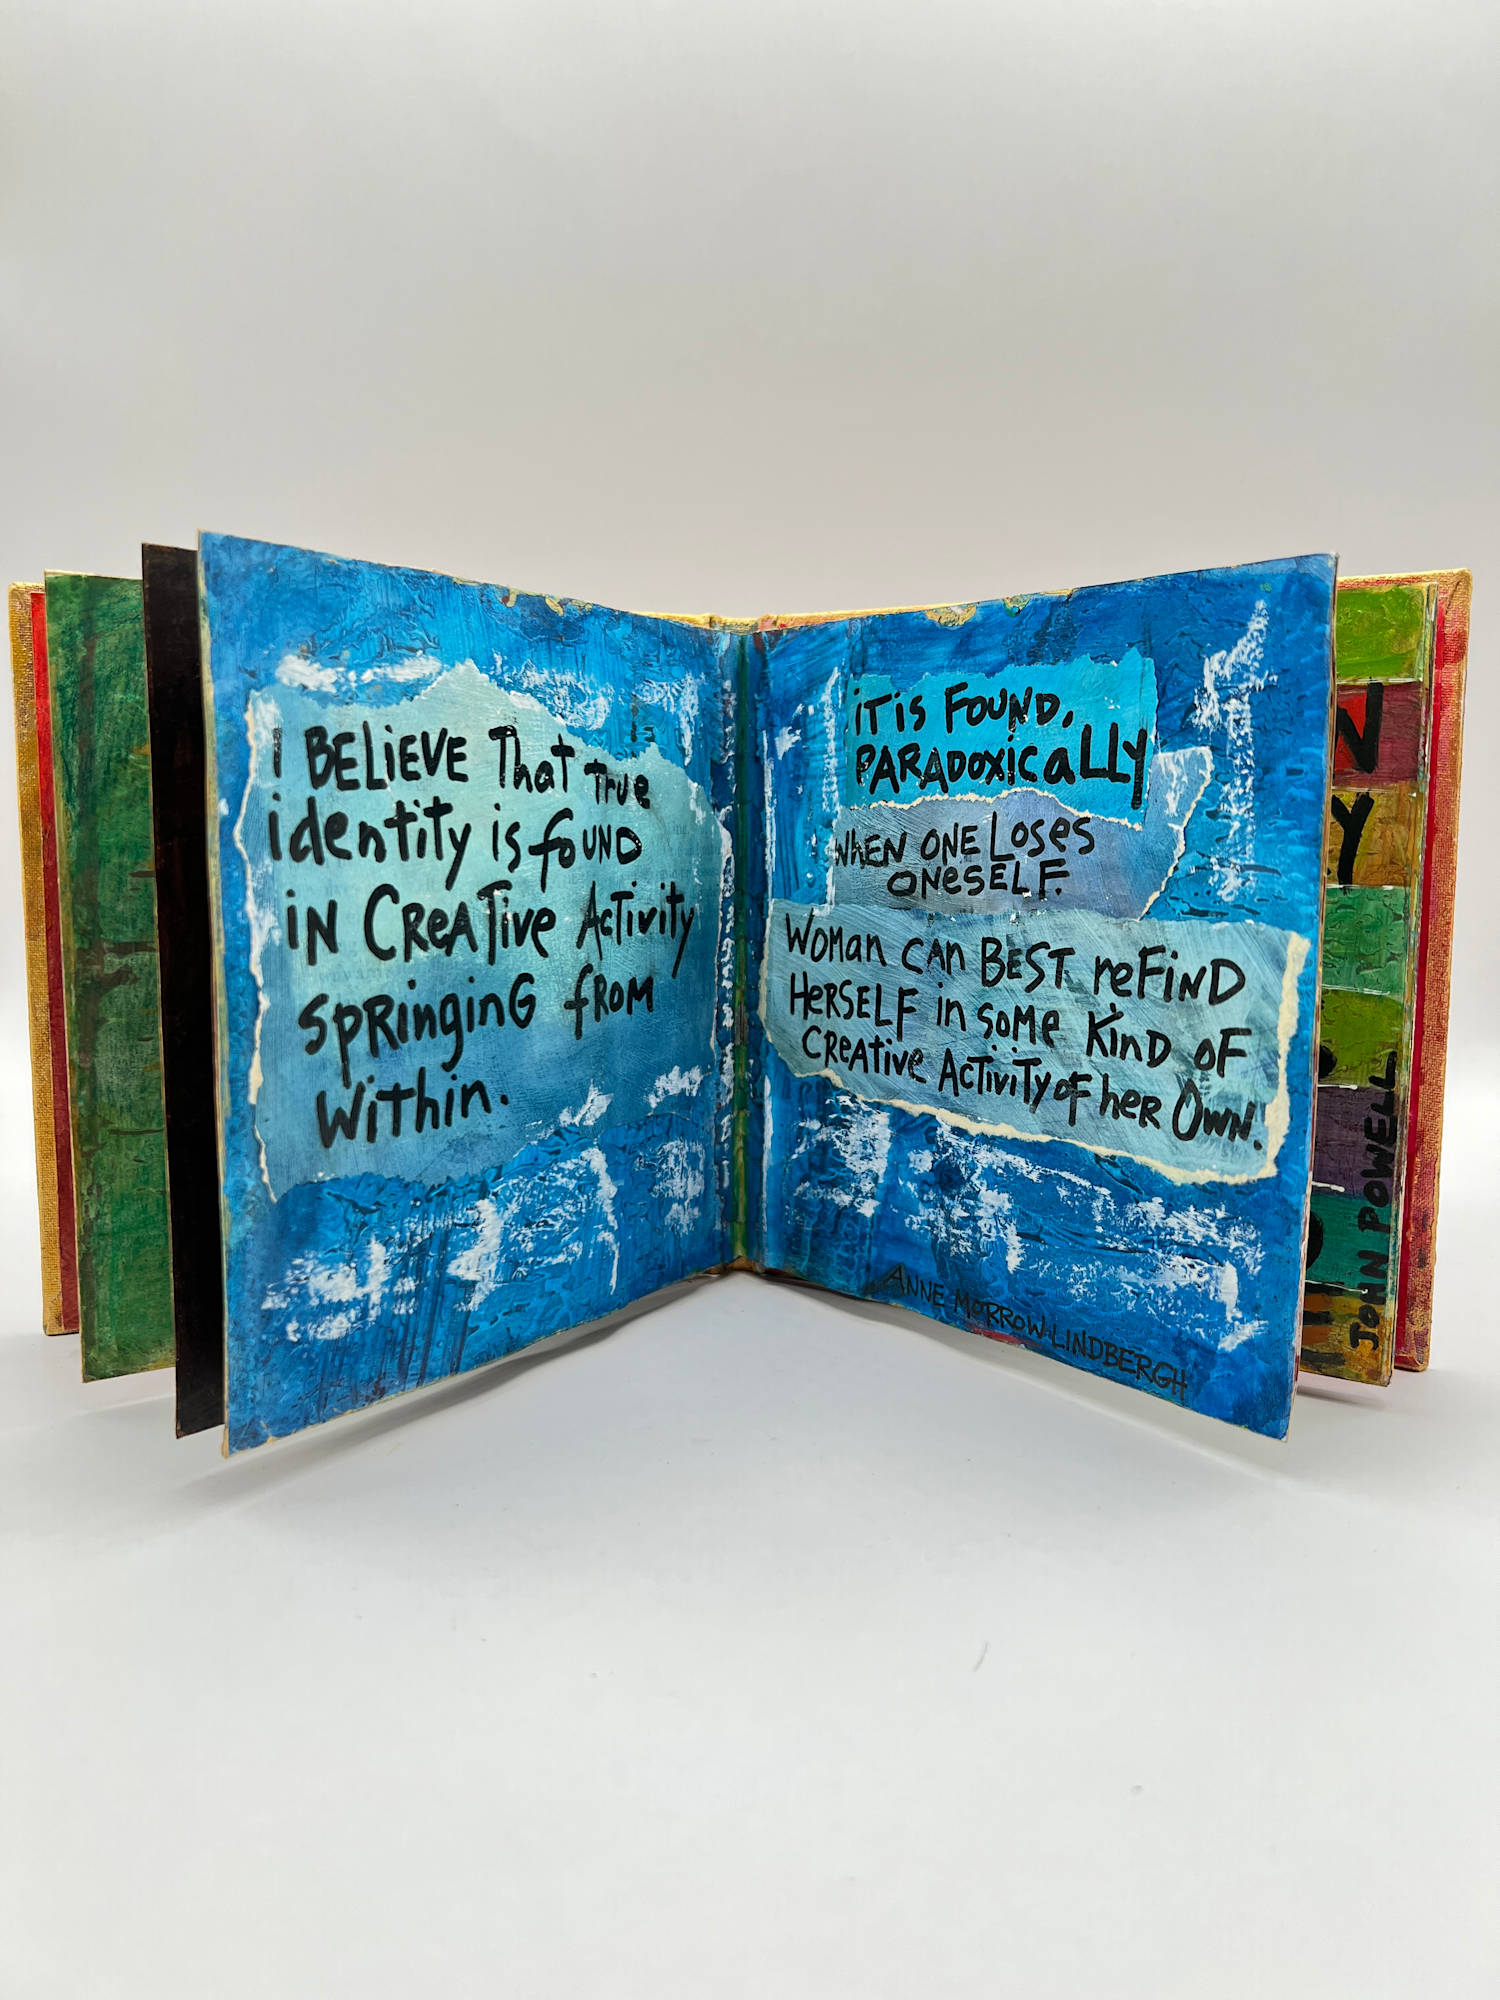 I BELiEVE That True
identity is foUND
iN CReATive Activity
spRinginG fROM
Within.
iT is FOUND,
PARADOXicaLLY
WHEN ONE LOSES
ONESELF.
WOMan CAN BEST reFIND
HERSELF in SOME KinD OF
CREATive ActivitY OF her OWN.
ANNE MORROW LINDBERGH
N
Y
JOHN POWELL